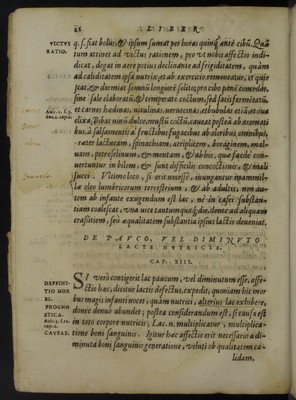 88 LIBER
VICTVS RATIO.
q. s. fiat bolus, & ipsum sumat per horas quinq; ante cibũ. Quã
tum attinet ad victus rationem, pro vt nobis affectio indi-
cat, degat in aere potius declinante ad frigiditatem, quàm
ad caliditatem ipsa nutrix, et ab exercitio remoueatur, et quie
scat, & dormiat somnũ longiorẽ solito, pro cibo panẽ comedat,
sine sale elaboratũ, & temporatè coctum, sed satis fermẽtatũ,
et carnes hędinas, vitulinas, veruecinas, et
elixa, bibat vinũ dulce, mustũ coctũ, caueat
bus, à salsamentis à fructibus fugacibus ab oleribus omnibus,
præter lactucam, spinachiam, atriplicem, boraginem, mal-
uam, petroselinum, & mentam, & ab his, quæ facilè con-
uertuntur in bilem, & sunt difficilis concoctionis, & mali
succi. Vltimo loco, si erit necesse, inungantur
læ oleo lumbricorum terrestrium, & ab adultis, non au-
tem ab infante exugendum est lac, nè in casei substan-
tiam coalescat, vna vice tantum quaq; die, donec ad aliquam
crassitiem, seu æqualitatem substantia ipsius lactis deueniat.
DE PAVCO, VEL DIMINVTO
LACTE NVTRICIS.
CAP. XIII.
DEFFINI-
TIO MOR
BI.
PROGNO
STICA.
CAVSAE.
SI verò contigerit lac paucum, vel diminutum esse, affe-
ctio hæc, dicitur lactis defectus, expedit, quoniam hic mor
bus magis infanti nocet, quàm nutrici, alterius lac exhibere,
donec denuò abundet; postea considerandum est, si causa est
in toto corpore nutricis, Lac. n. multiplicatur, multiplica-
tione boni sanguinis. Igitur hæc affectio erit necessariò a di-
minuta boni sanguinis generatione, veluti ob qualitatem ca-
lidam,